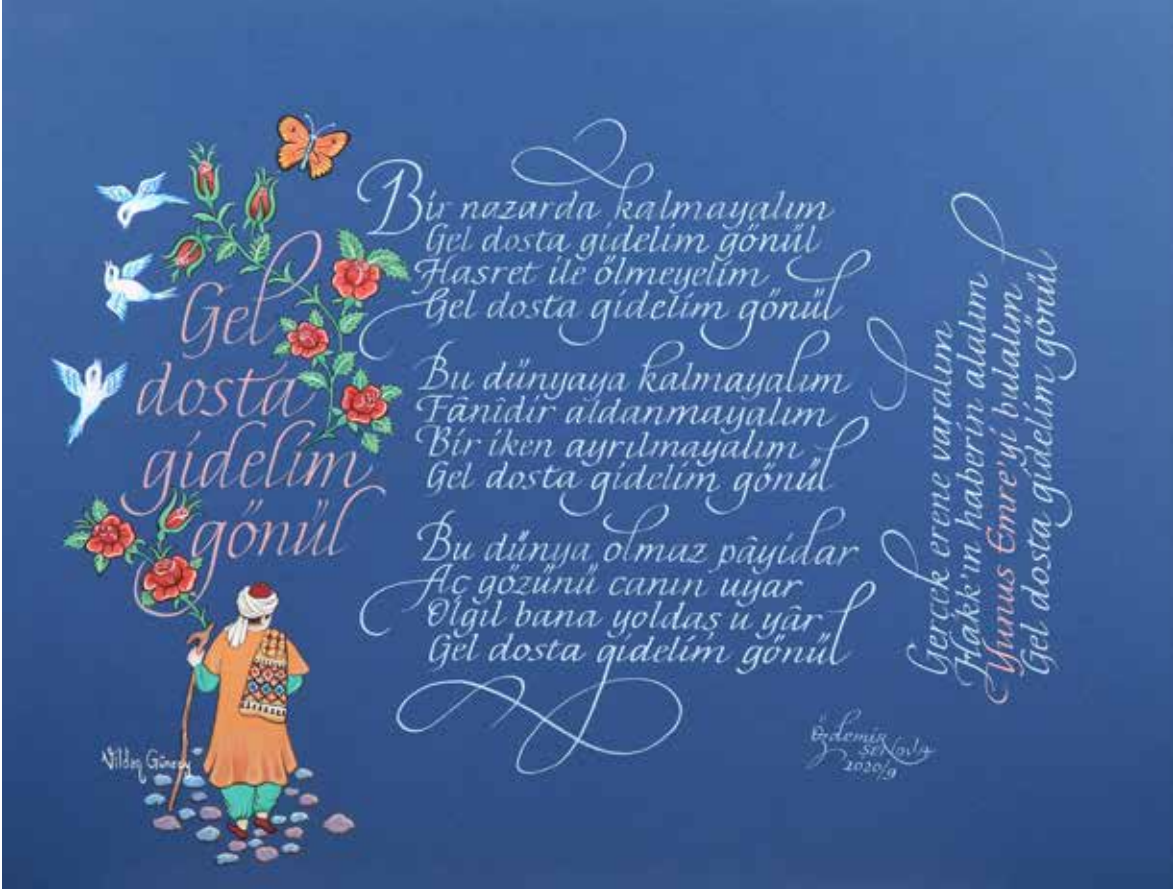 Gel
dosta
gidelim
gönül
Bir nazarda kalmayalım
Gel dosta gidelim gönül
Hasret ile ölmeyelim
Gel dosta gidelim gönül
Bu dünyaya kalmayalım
Fânîdir aldanmayalım
Bir iken ayrılmayalım
Gel dosta gidelim gönül
Bu dünya olmaz pâyidar
Aç gözünü canın uyar
Olgıl bana yoldaş u yâr
Gel dosta gidelim gönül
Gerçek erene varalım
Hakk'ın haberin alalım
Yunus Emre'yi bulalım
Gel dosta gidelim gönül
Vildan Güneay
Özdemir
2020/9